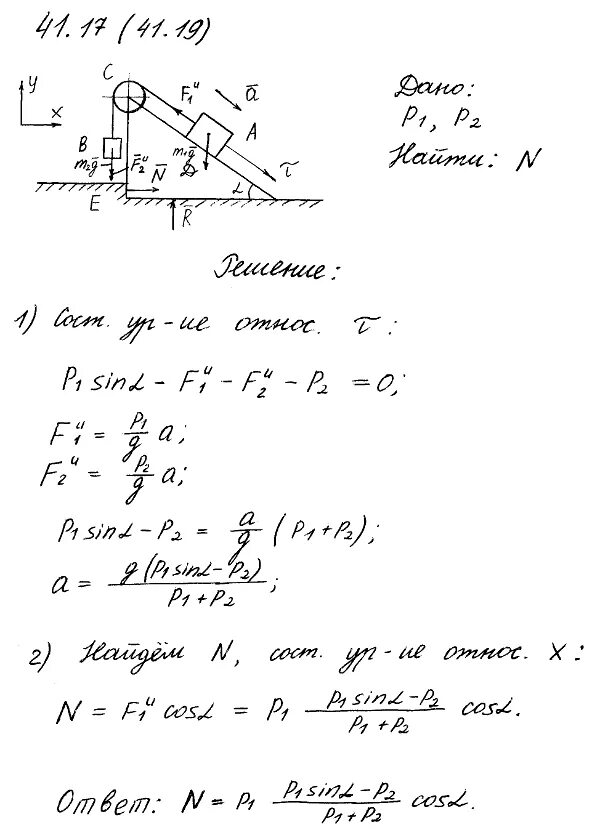 41.17 (41.19)
y
x
C
F₁ᴴ
a̅
A
B
m₂g̅
F̅₂ᴴ
N̅
m₁g̅
D
τ
E
R̅
α
Дано:
P₁, P₂
Найти: N
Решение:
1) Сост. ур-ие относ. τ:
P₁ sinα - F₁ᴴ - F₂ᴴ - P₂ = 0;
F₁ᴴ = P₁/g a;
F₂ᴴ = P₂/g a;
P₁ sinα - P₂ = a/g (P₁+P₂);
a = g(P₁sinα-P₂)/P₁+P₂;
2) Найдём N, сост. ур-ие относ. x:
N = F₁ᴴ cosα = P₁ P₁sinα-P₂/P₁+P₂ cosα.
Ответ: N = P₁ P₁sinα-P₂/P₁+P₂ cosα.